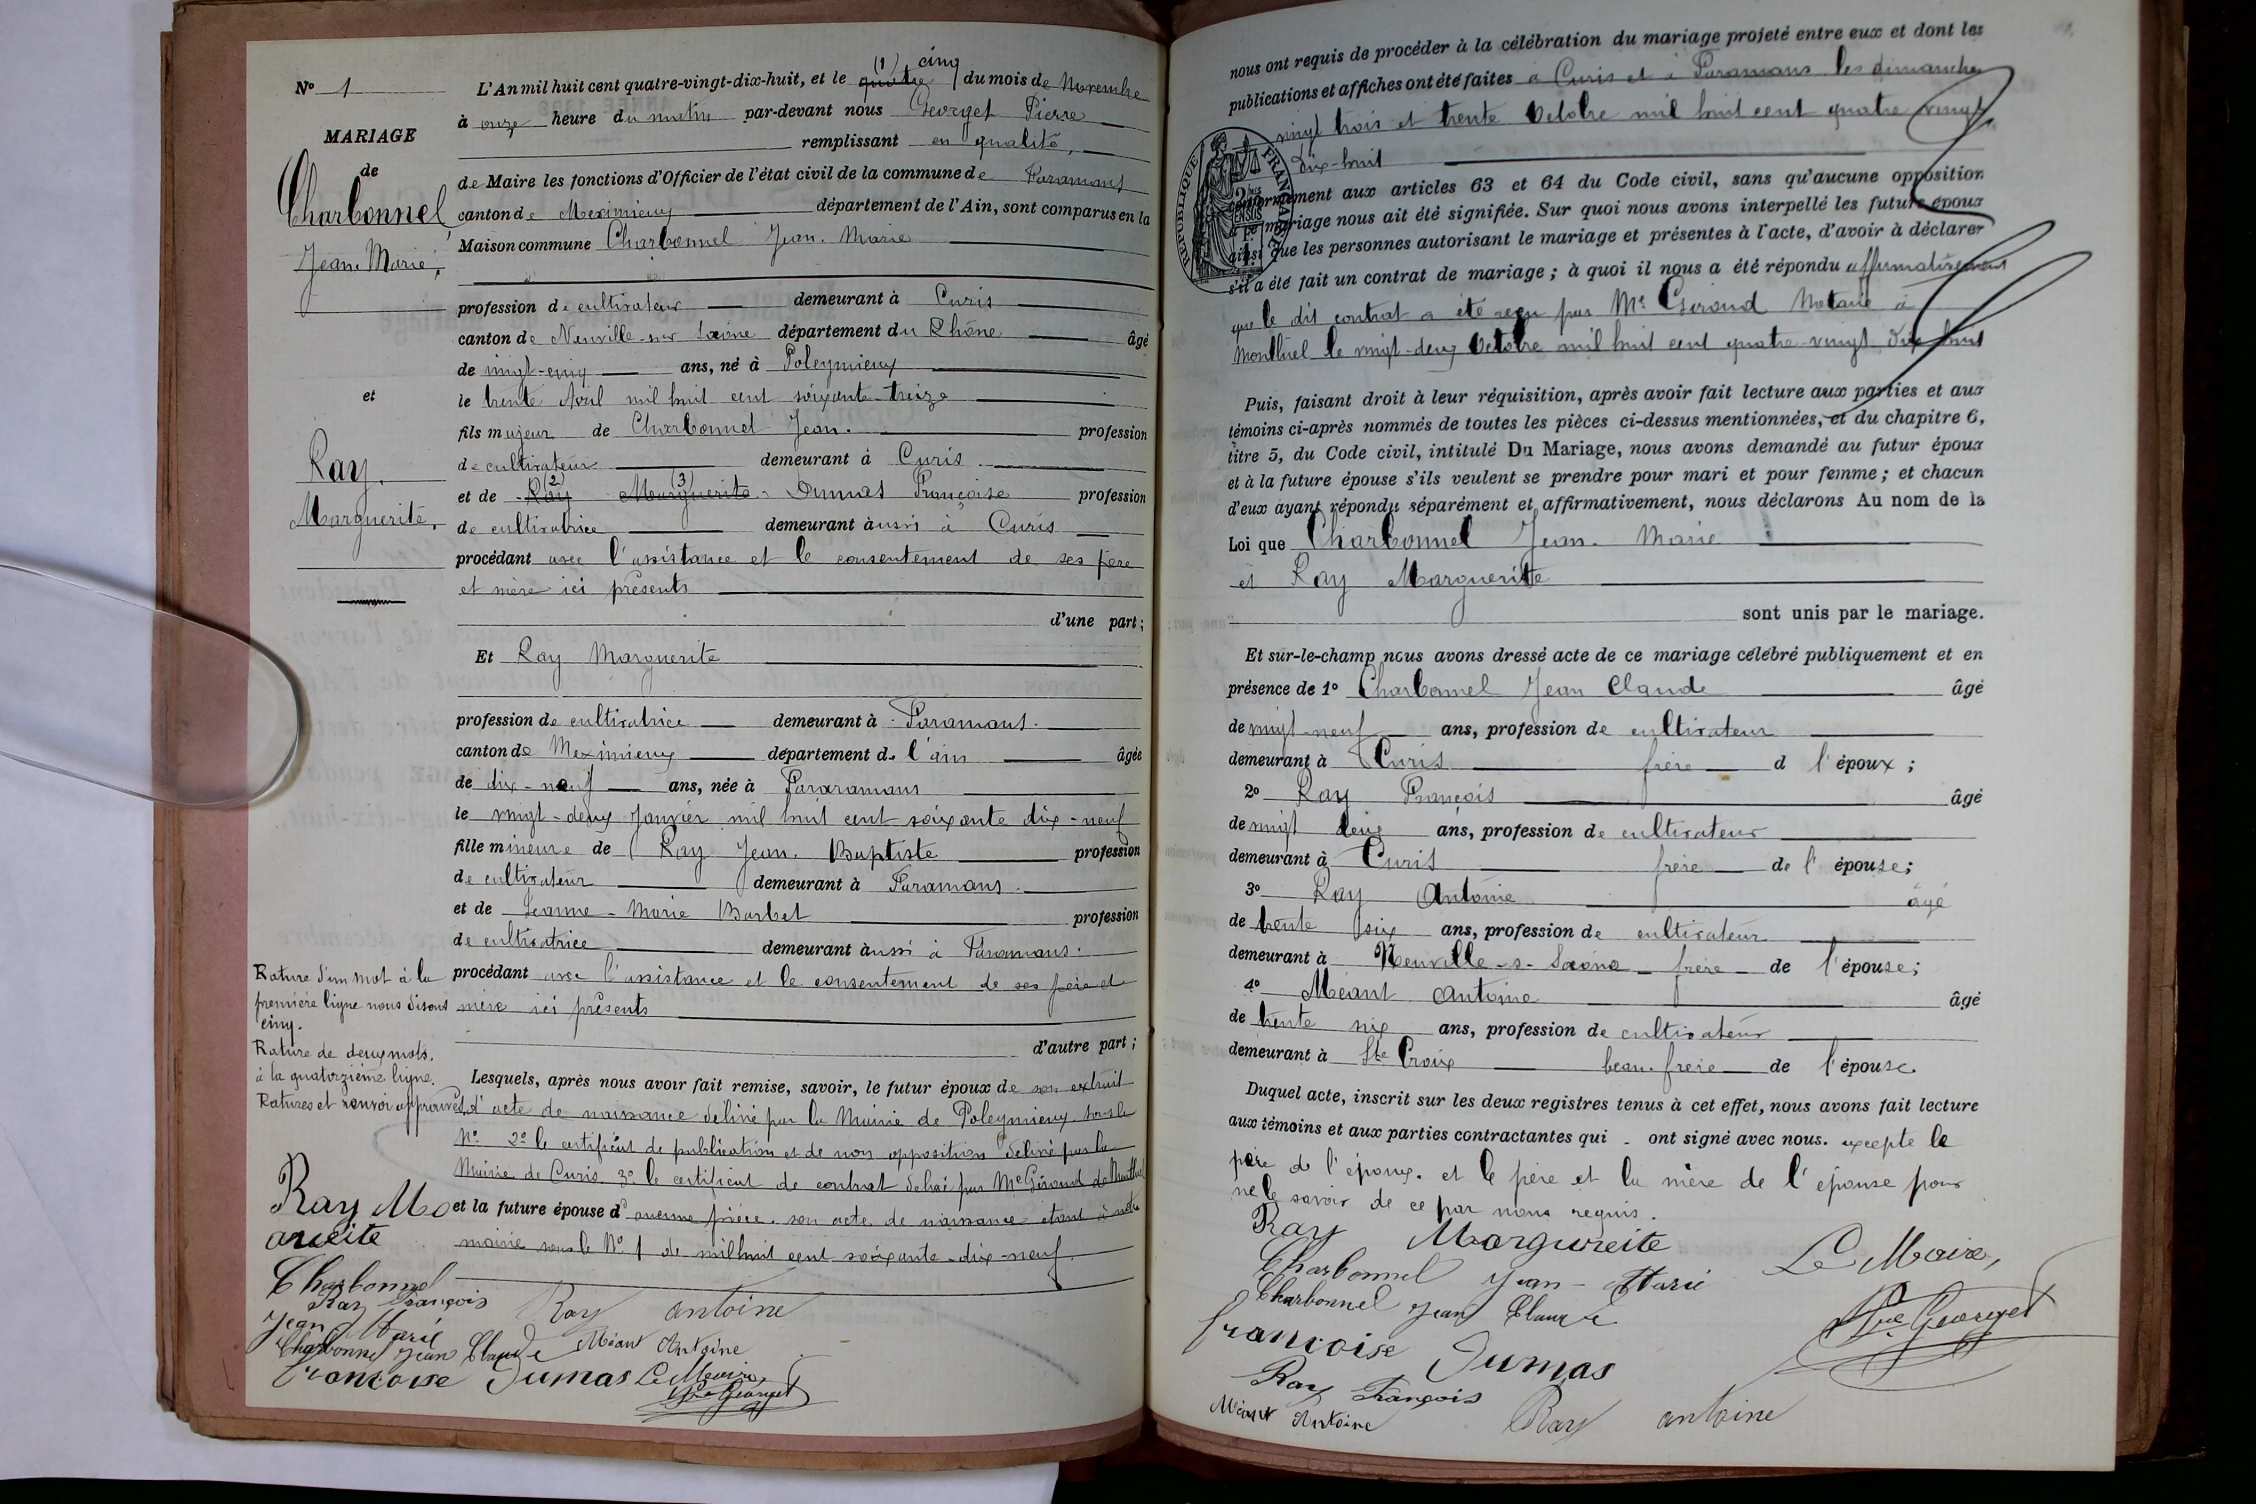 N° 1
MARIAGE
de
Charbonnel
Jean-Marie,
et
Ray.
Marguerite,
Rature d'un mot à la
première ligne nous disons
cinq.
Rature de deux mots.
à la quatorzième ligne.
Ratures et renvoi approuvés.
(1) cinq
L'An mil huit cent quatre-vingt-dix-huit, et le quatre du mois de Novembre
à onze heure du matin par-devant nous Georget Pierre
remplissant en qualité,
de Maire les fonctions d'Officier de l'état civil de la commune de Faramans
canton de Meximieux département de l'Ain, sont comparus en la
Maison commune Charbonnel Jean-Marie
profession de cultivateur demeurant à Curis
canton de Neuville-sur Saône département du Rhône âgé
de vingt-cinq ans, né à Poleymieux
le trente Avril mil huit cent soixante-treize
fils majeur de Charbonnel Jean. profession
de cultivateur demeurant à Curis.
et de Ray (2) Marguerite (3) Dumas Françoise profession
de cultivatrice demeurant aussi à Curis
procédant avec l'assistance et le consentement de ses père
et mère ici présents
d'une part;
Et Ray Marguerite
profession de cultivatrice demeurant à Faramans.
canton de Meximieux département de l'ain âgée
de dix-neuf ans, née à Fararamans
le vingt-deux Janvier mil huit cent soixante dix-neuf
fille mineure de Ray Jean-Baptiste profession
de cultivateur demeurant à Faramans.
et de Jeanne-Marie Barbet profession
de cultivatrice demeurant aussi à Faramans.
procédant avec l'assistance et le consentement de ses père et
mère ici présents
d'autre part;
Lesquels, après nous avoir fait remise, savoir, le futur époux de son extrait
d'acte de naissance délivré par la Mairie de Poleymieux sous le
N° 2° le certificat de publication et de non opposition délivré par la
Mairie de Curis. 3° le certificat de contrat délivré par Me Giroud de Montluel
et la future épouse d' aucune pièce. son acte de naissance étant à notre
mairie sous le N° 1 de mil huit cent soixante-dix-neuf.
Ray Charbonnel
Ray François Ray antoine
Jean Marie
Charbonnel Jean Claude Méant Antoine
françoise Dumas Le Maire,
Pre Georget
nous ont requis de procéder à la célébration du mariage projeté entre eux et dont les
publications et affiches ont été faites à Curis et à Faramans les dimanches
vingt trois et trente Octobre mil huit cent quatre vingt
dix-huit
RÉPUBLIQUE FRANÇAISE
conformément aux articles 63 et 64 du Code civil, sans qu'aucune opposition
à ce mariage nous ait été signifiée. Sur quoi nous avons interpellé les futurs époux
ainsi que les personnes autorisant le mariage et présentes à l'acte, d'avoir à déclarer
s'il a été fait un contrat de mariage; à quoi il nous a été répondu affirmativement
que le dit contrat a été reçu par Me Giroud Notaire à
Montluel le vingt-deux Octobre mil huit cent quatre-vingt dix huit
Puis, faisant droit à leur réquisition, après avoir fait lecture aux parties et aux
témoins ci-après nommés de toutes les pièces ci-dessus mentionnées, et du chapitre 6,
titre 5, du Code civil, intitulé Du Mariage, nous avons demandé au futur époux
et à la future épouse s'ils veulent se prendre pour mari et pour femme; et chacun
d'eux ayant répondu séparément et affirmativement, nous déclarons Au nom de la
Loi que Charbonnel Jean-Marie
et Ray Marguerite
sont unis par le mariage.
Et sur-le-champ nous avons dressé acte de ce mariage célébré publiquement et en
présence de 1° Charbonnel Jean Claude âgé
de vingt-neuf ans, profession de cultivateur
demeurant à Curis frère d l'époux;
2° Ray François âgé
de vingt deux ans, profession de cultivateur
demeurant à Curis frère de l'épouse;
3° Ray Antoine âgé
de trente six ans, profession de cultivateur
demeurant à Neuville-s-Saône frère de l'épouse;
4° Méant Antoine âgé
de trente six ans, profession de cultivateur
demeurant à Ste Croix beau-frère de l'épouse.
Duquel acte, inscrit sur les deux registres tenus à cet effet, nous avons fait lecture
aux témoins et aux parties contractantes qui ont signé avec nous. excepte le
père de l'époux. et le père et la mère de l'épouse pour
ne le savoir de ce par nous requis.
Ray Margureite
Charbonnel Jean-Marie Le Maire,
Charbonnel Jean Claude Pre Georget
françoise Dumas
Ray François
Méant Antoine Ray antoine